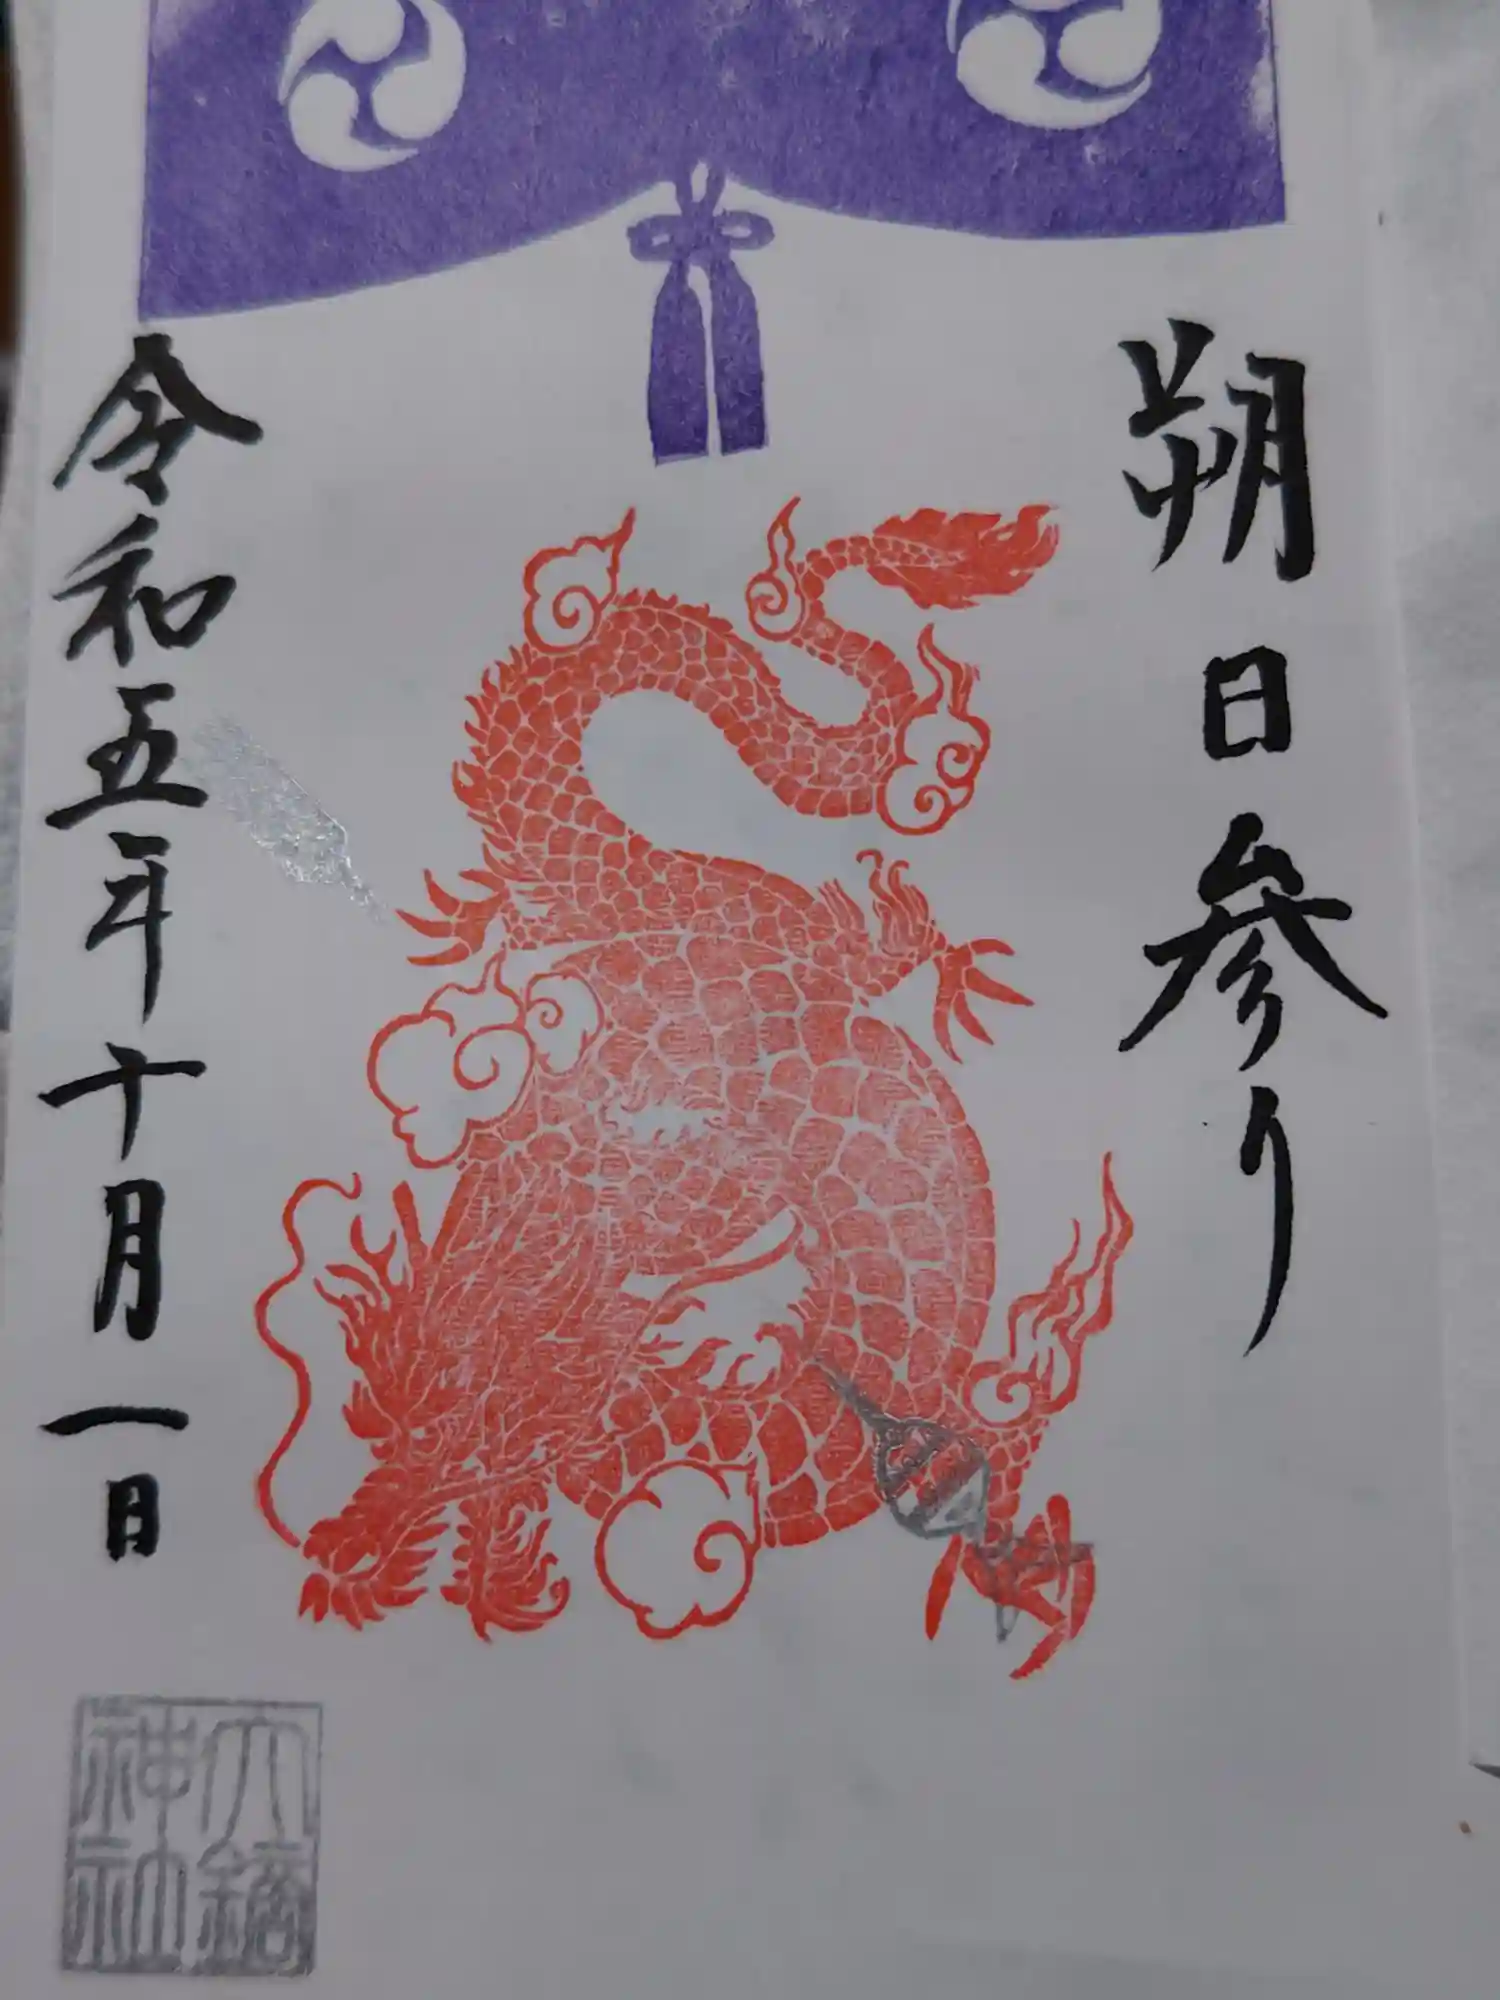 朔日参り
令和五年十月一日
六鏑
神社